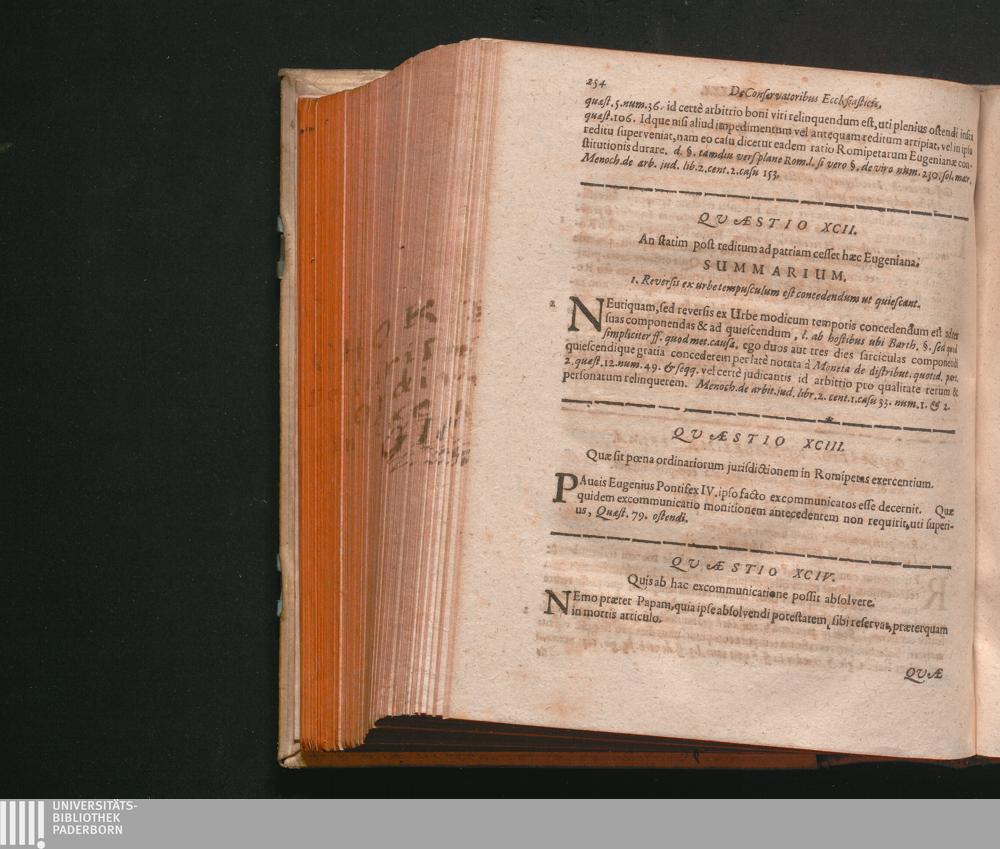 254
De Conservatoribus Ecclesiasticis,
quæst. 5. num. 36. id certè arbitrio boni viri relinquendum est, uti plenius ostendi infra
quæst. 106. Idque nisi aliud impedimentum vel antequam reditum arripiat, vel in ipso
reditu superveniat, nam eo casu dicetur eadem ratio Romipetarum Eugenianæ con-
stitutionis durare. d. §. tamdiu vers. plane Rom. l. si vero §. de viro num. 230. sol. matr.
Menoch. de arb. jud. lib. 2. cent. 2. casu 153.
QVÆSTIO XCII.
An statim post reditum ad patriam cesset hæc Eugeniana.
SUMMARIUM.
1. Reversis ex urbe tempusculum est concedendum ut quiescant.
NEutiquam, sed reversis ex Urbe modicum temporis concedendum est
suas componendas & ad quiescendum, l. ab hostibus ubi Barth. §. sed quod
simpliciter ff. quod met. causa, ego duos aut tres dies sarciculas componendi
quiescendique gratia concederem per latè notata à Moneta de distribut. quotid. par.
2. quæst. 12. num. 49. & seqq. vel certè judicantis id arbitrio pro qualitate rerum &
personarum relinquerem. Menoch. de arbit. jud. libr. 2. cent. 1. casu 33. num. 1. & 2.
QVÆSTIO XCIII.
Quæ sit pœna ordinariorum jurisdictionem in Romipetas exercentium.
PAucis Eugenius Pontifex IV. ipso facto excommunicatos esse decernit. Quæ
quidem excommunicatio monitionem antecedentem non requirit, uti superi-
us, Quæst. 79. ostendi.
QVÆSTIO XCIV.
Quis ab hac excommunicatione possit absolvere.
NEmo præter Papam, quia ipse absolvendi potestatem, sibi reservat, præterquam
in mortis articulo.
QVÆ
UNIVERSITÄTS-
BIBLIOTHEK
PADERBORN